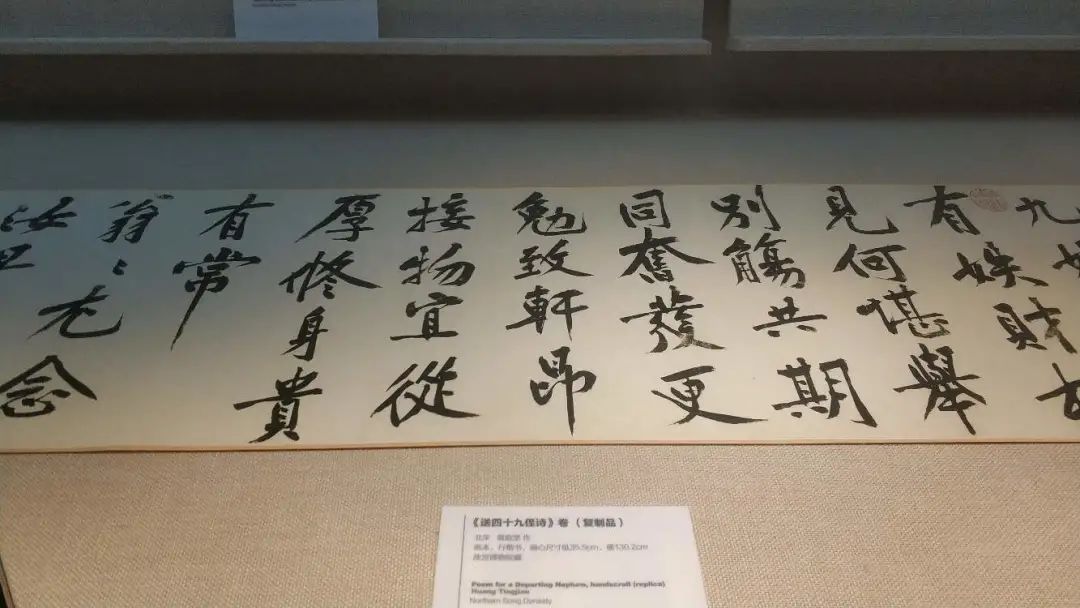 九
有姪財
見何堪舉
別觴共期
同奮發更
勉致軒昂
接物宜從
厚修身貴
有常
翁〻尤念
汝
《送四十九侄诗》卷（复制品）
北宋 黄庭坚 作
纸本，行楷书，画心尺寸纵35.5cm，横130.2cm
故宫博物院藏
Poem for a Departing Nephew, handscroll (replica)
Huang Tingjian
Northern Song Dynasty